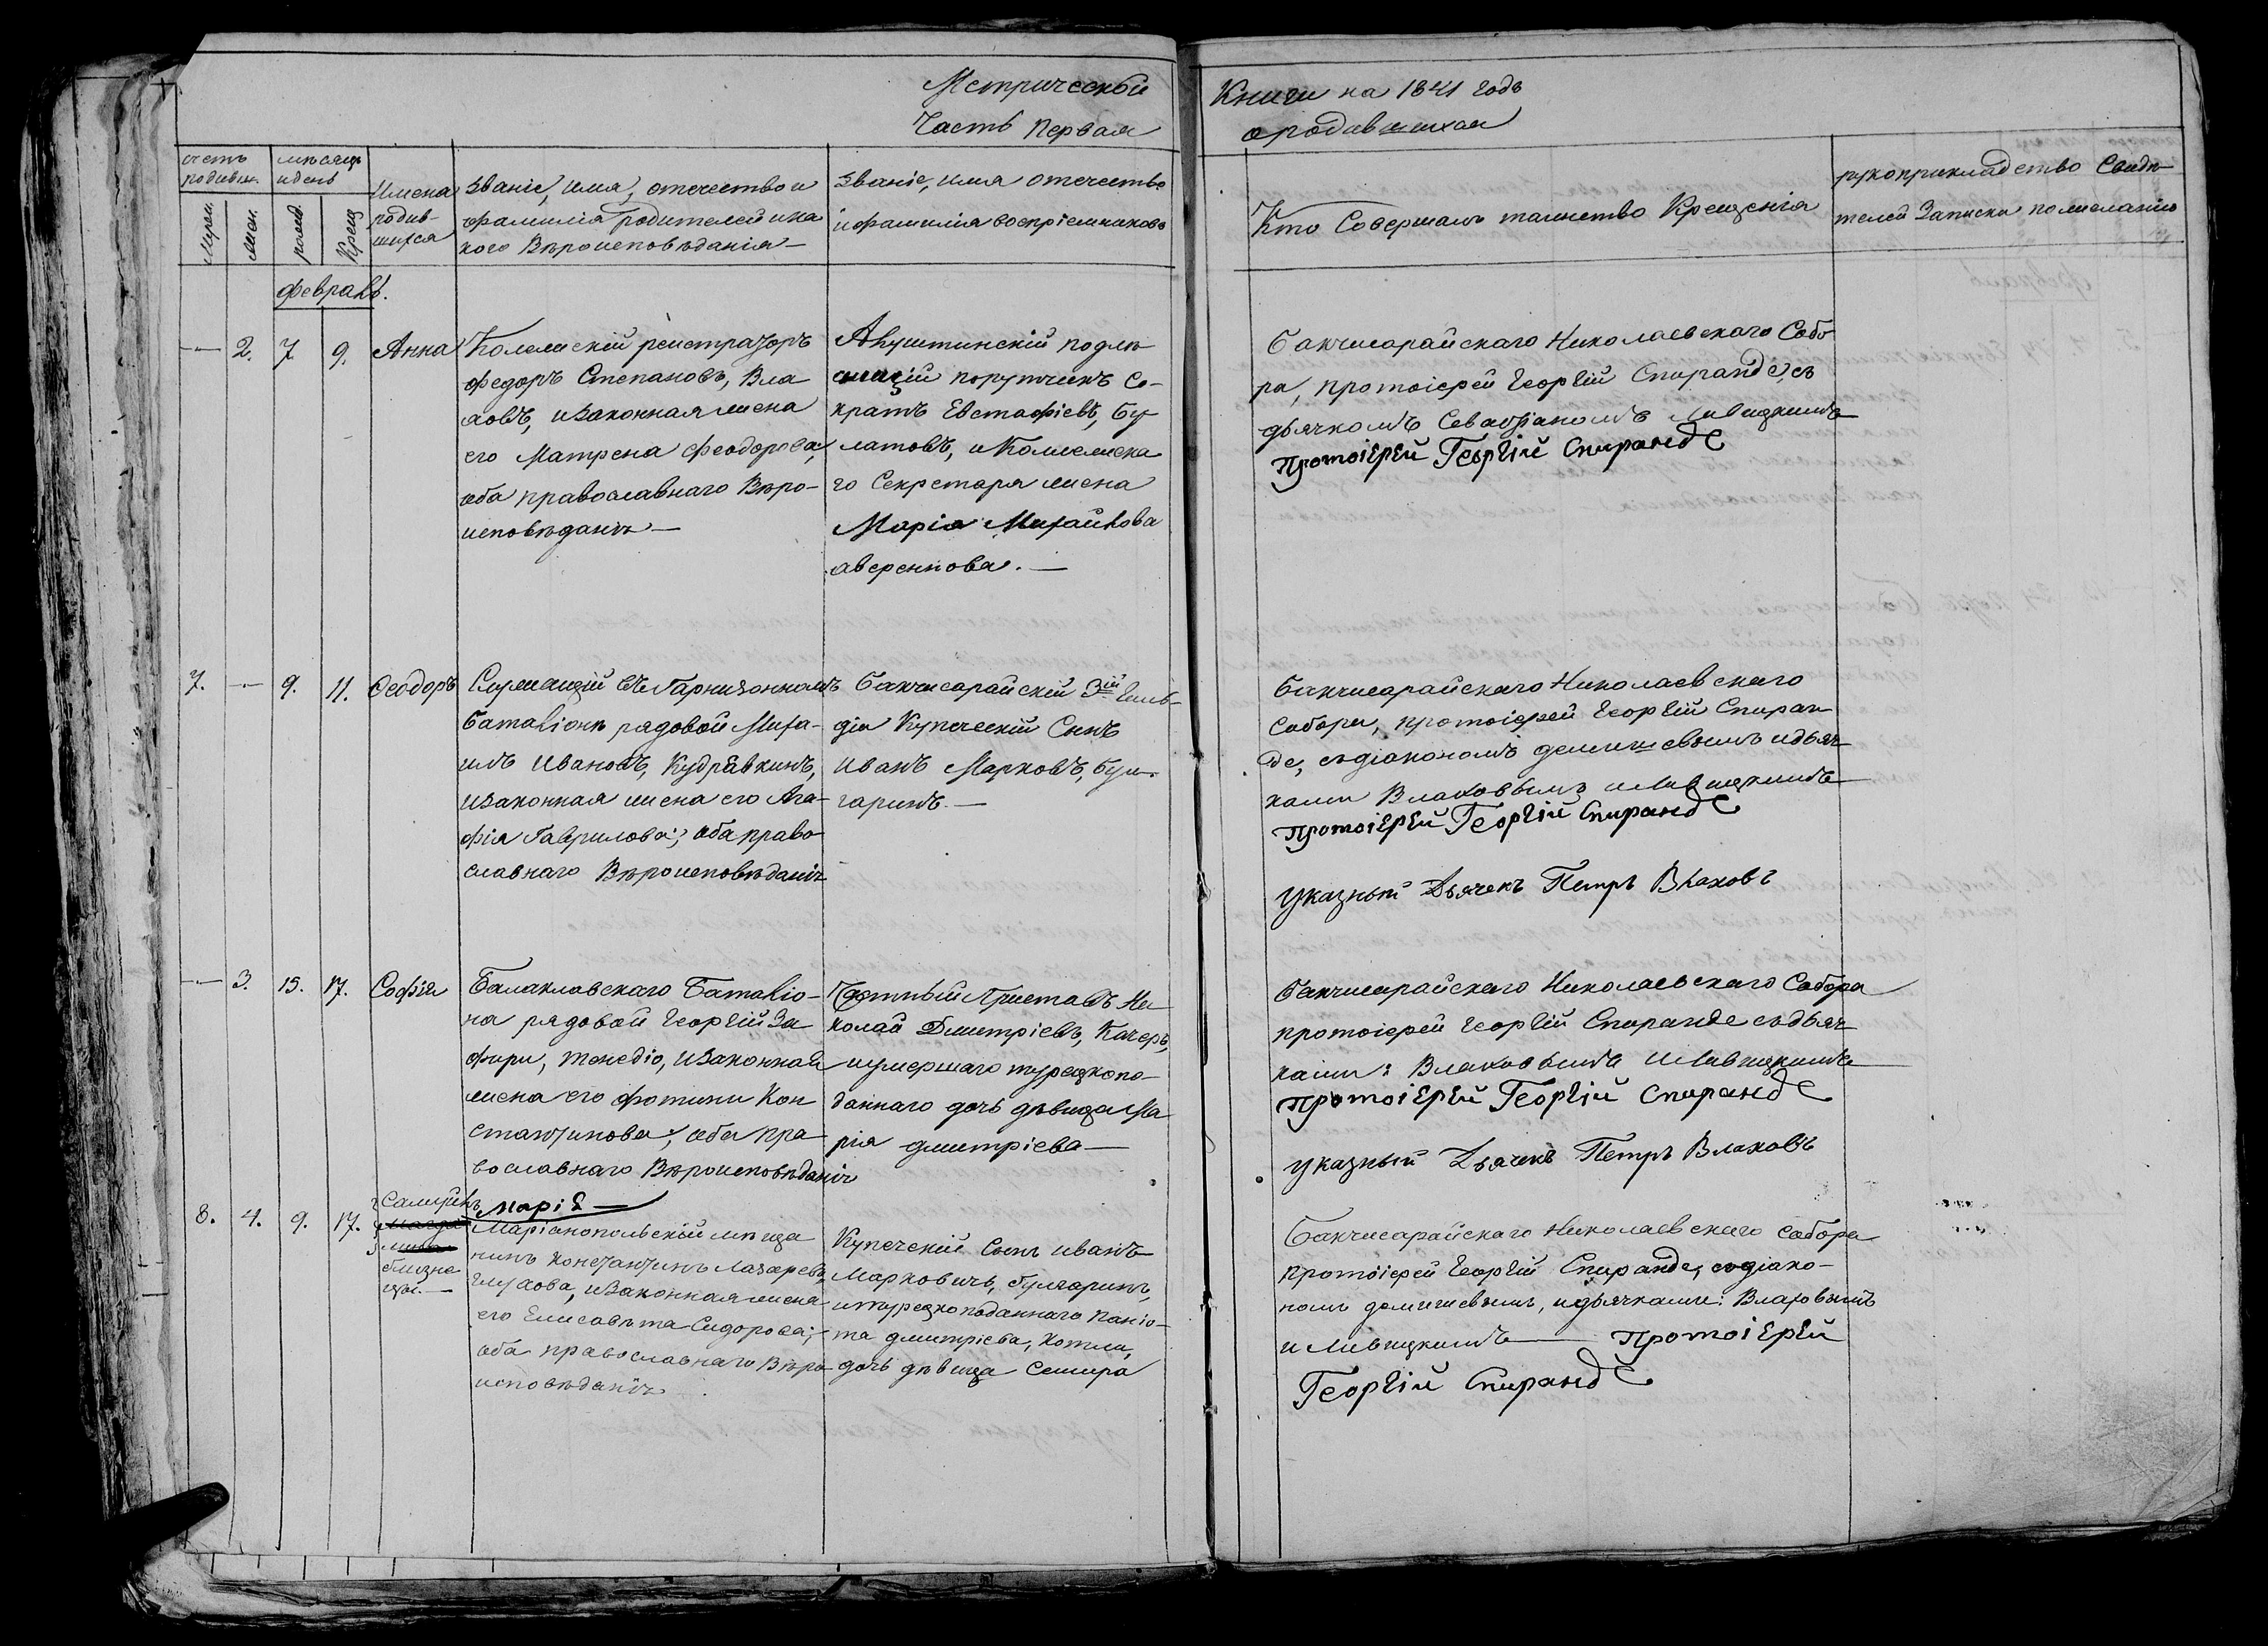 Метрической
Часть первая
Книги на 1841 годъ
о родившихся
счетъ родивш.
мѣсяцъ и день
муж.
жен.
рожд.
Крещ
Имена родив-шихся
Званіе, имя, отчество и
фамилія родителей и ка
кого Вѣроисповѣданія —
Званіе, имя отчество
и фамилія воспріемниковъ
Кто Совершалъ таинство Крещенія
рукоприкладство Свидѣ-
телей Записки по желанію
февраль.
— 2. 7 9. Анна
Колежскій регистраторъ
Федоръ Степановъ, Вла
ховъ, и законная жена
его Матрена Феодорова,
оба православнаго Вѣро-
исповѣданія —
Алуштинскій подлѣ-
жащій поручикъ Со-
кратъ Евстафіевъ, Бу
латовъ, и Колежска
го Секретаря жена
Марія Михайлова
аверенкова. —
Бакчисарайскаго Николаевскаго Собо
ра, протоіерей Георгій Спиранде, съ
дьячкомъ Севастіаномъ Левицкимъ
Протоіерей Георгій Спиранде
7. — 9. 11. Феодоръ
Служащій въ Гарнизонномъ
баталіонѣ рядовой Миха-
илъ Ивановъ, Кудрявкинъ,
и законная жена его Ага-
фія Гаврилова; оба право
славнаго Вѣроисповѣданія
Бакчисарайскій 3й Гиль-
діи Купеческій Сынъ
Иванъ Марковъ, Бул-
гаринъ. —
Бакчисарайскаго Николаевскаго
Собора, протоіерей Георгій Спиран
де, съ діакономъ демишевымъ и дьяч
ками Влаховымъ и Левицкимъ
Протоіерей Георгій Спиранде
Указный Дьячекъ Петръ Влаховъ
— 3. 15. 17. Софія
Балаклавскаго Баталіо-
на рядовой Георгій За
фири, Тенедіо, и законная
жена его Фотини Кон
стантинова; оба пра
вославнаго Вѣроисповѣданія
Приставъ Ни
колай Дмитріевъ, Качеръ,
и умершаго турецкопо-
даннаго дочь дѣвица Ма
рія дмитріева —
Бакчисарайскаго Николаевскаго Собора
протоіерей Георгій Спиранде съ дьяч
ками: Влаховымъ и Левицкимъ
Протоіерей Георгій Спиранде
Указный Дьячекъ Петръ Влаховъ
8. 4. 9. 17.
марія —
близне
цы. —
Маріанопольскій мѣща
нинъ Константинъ Лазаревъ,
Глухова, и законная жена
его Елисавѣта Сидорова;
оба православнаго Вѣро
исповѣданія
Купечскій Сынъ иванъ
Марковичъ, булгаринъ,
и турецкоподаннаго Паніо-
та дмитріева,
дочь дѣвица Семира
Бакчисарайскаго Николаевскаго собора
протоіерей Георгій Спиранде, съ діако-
номъ демишевымъ, и дьячками: Влаховымъ
и Левицкимъ — Протоіерей
Георгій Спиранде